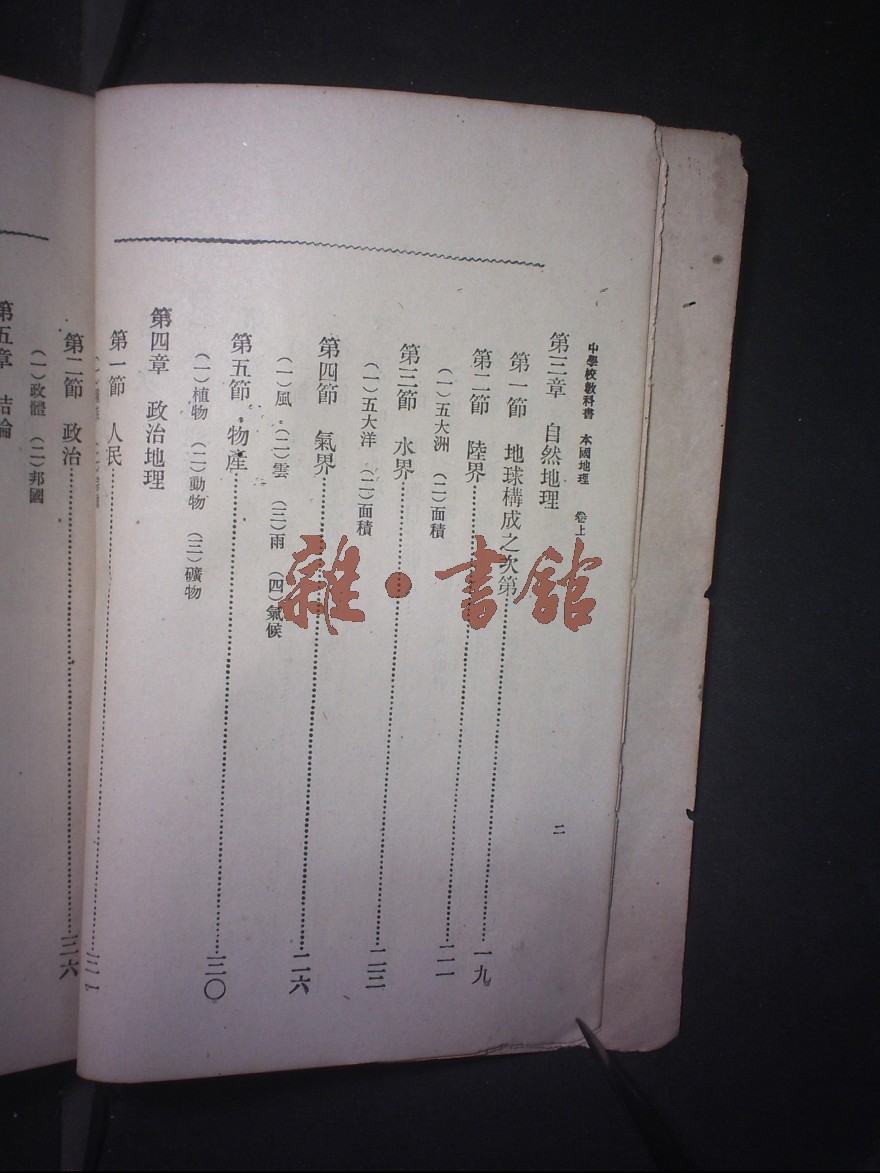 中學校教科書 本國地理 卷上
二
第三章 自然地理
第一節 地球構成之次第……一九
第二節 陸界……二一
(一)五大洲 (二)面積
第三節 水界……二三
(一)五大洋 (二)面積
第四節 氣界……二六
(一)風 (二)雲 (三)雨 (四)氣候
第五節 物產……三〇
(一)植物 (二)動物 (三)礦物
第四章 政治地理
第一節 人民……三一
第二節 政治……三六
(一)政體 (二)邦國
第五章 結論
雜·書館